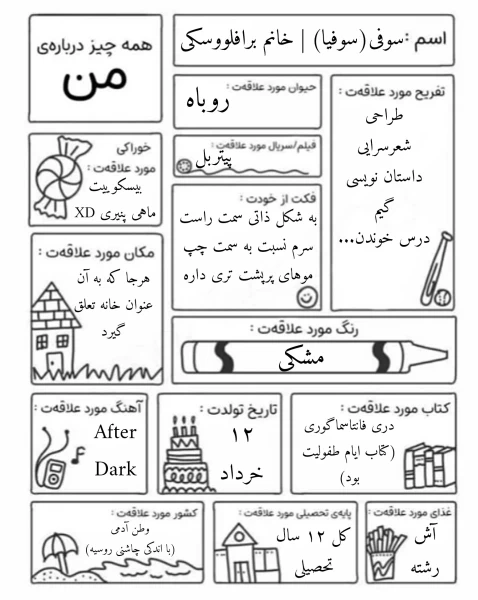 همه چیز درباره‌ی
من
اسم :سوفی (سوفیا) | خانم برافلووسکی
حیوان مورد علاقه‌ت :
روباه
تفریح مورد علاقه‌ت :
طراحی
شعرسرایی
داستان نویسی
گیم
درس خوندن...
خوراکی
مورد علاقه‌ت :
بیسکوییت
ماهی پنیری XD
فیلم/سریال مورد علاقه‌ت :
پیتربل
فکت از خودت :
به شکل ذاتی سمت راست
سرم نسبت به سمت چپ
موهای پرپشت تری داره
مکان مورد علاقه‌ت :
هرجا که به آن
عنوان خانه تعلق
گیرد
رنگ مورد علاقه‌ت :
مشکی
آهنگ مورد علاقه‌ت :
After
Dark
تاریخ تولدت :
۱۲
خرداد
کتاب مورد علاقه‌ت :
دری فانتاسماگوری
(کتاب ایام طفولیت
بود)
کشور مورد علاقه‌ت :
وطن آدمی
(با اندکی چاشنی روسیه)
پایه‌ی تحصیلی مورد علاقه‌ت :
کل ۱۲ سال
تحصیلی
غذای مورد علاقه‌ت :
آش
رشته